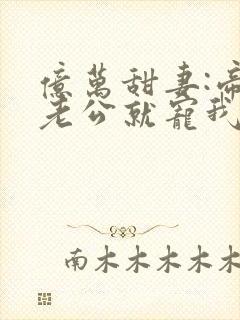 億萬甜妻:帝
老公就寵我
南木木木木木